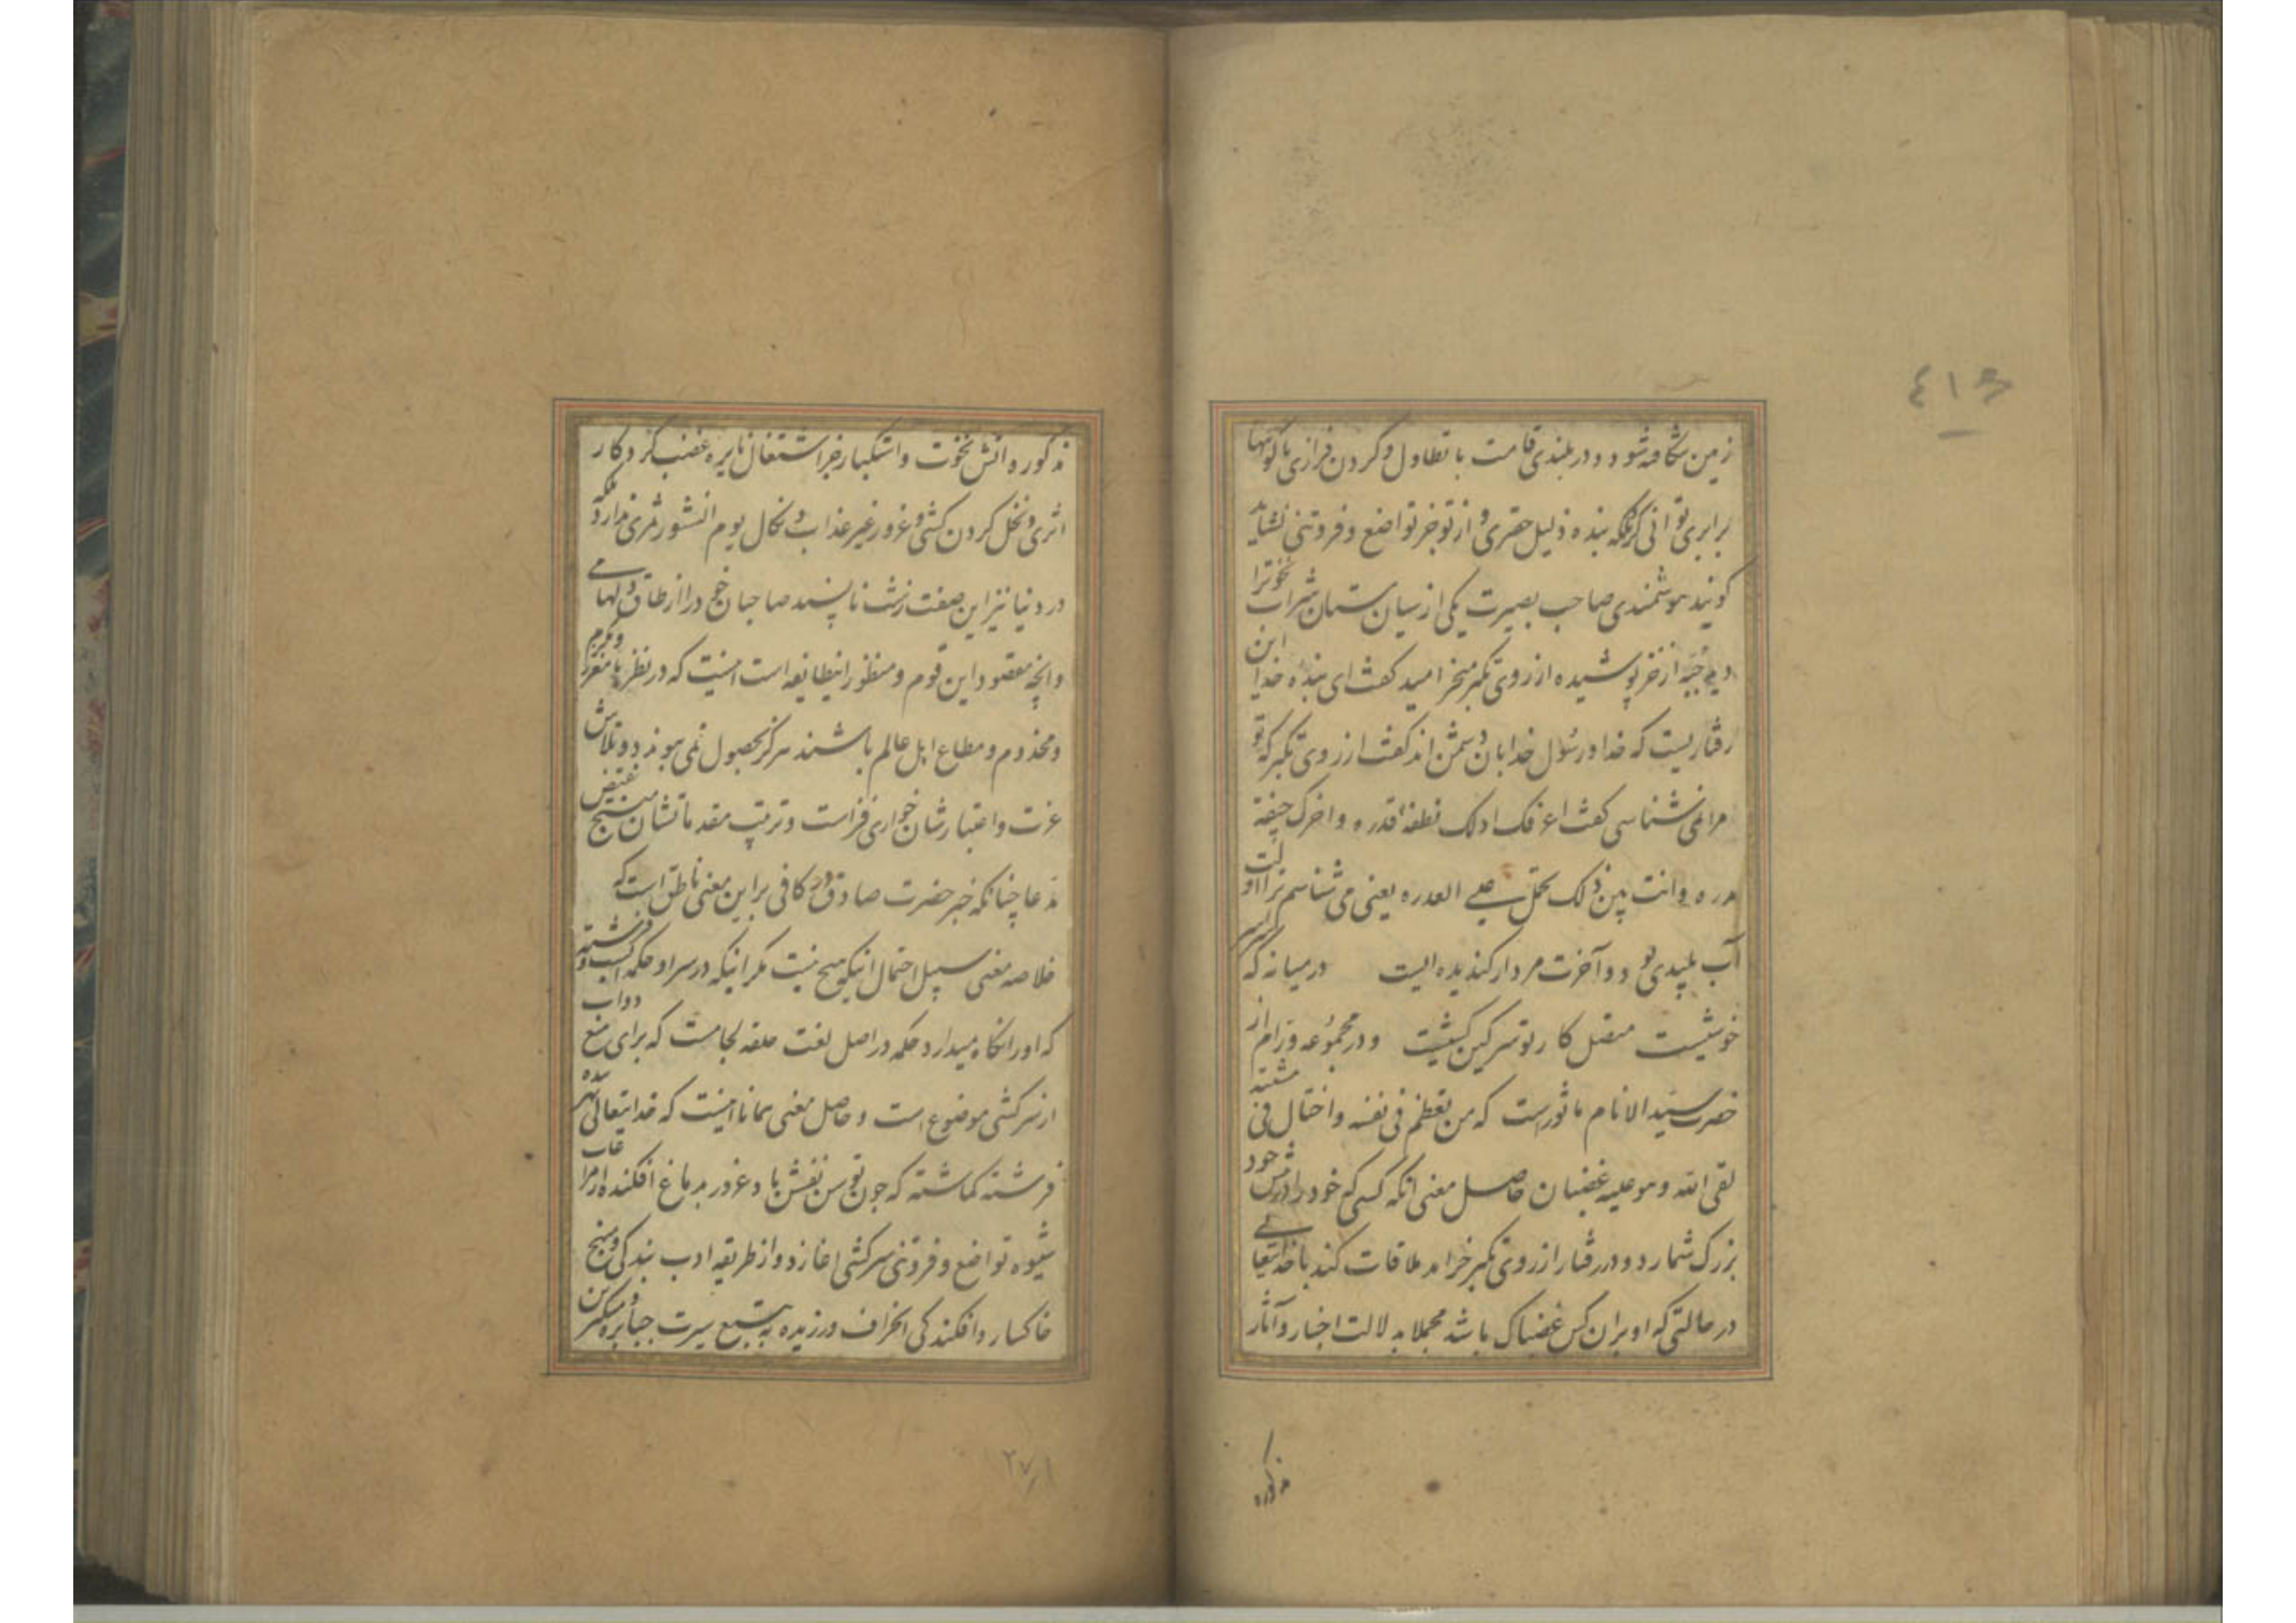 ٤١٦
زمین شکافته شود و در بلندی قامت با تطاول و کردن فرازی با کوهها
برابری توانی کرد بلکه بنده ذلیل حقیری و از تو جز تواضع و فروتنی نشاید
کویند هوشمندی صاحب بصیرت یکی از سیان مستان شراب نخوترا
دید جبه از خز پوشیده از روی تکبر میخرامید کفت ای بنده خدا این
رفتاریست که خدا و رسول خدا بان دشمن اند کفت از روی تکبر که تو
مرا نمی شناسی کفت اعرفک اولک نطفة قذره و اخرک جیفة
مذره وانت بین ذلک تحمل علی العذره یعنی می شناسم ترا اولت
آب پلیدی بود و آخرت مردار کندیده ایست در میانه که سر
خوشیست متصل کار تو سرکین کشیست و در مجموعه ورام از
حضرت سید الانام ماثور است که من تعظم فی نفسه و اختال فی مشیته
لقی الله و هو علیه غضبان حاصل معنی انکه کسی که خود را در پیش خود
بزرک شمارد و در رفتار از روی تکبر خرامد ملاقات کند با خدایتعالی
در حالتی که او بران کس غضبناک باشد مجملا بدلالت اخبار و آثار
مذکوره
مذکوره آتش نخوت و استکبار جز اشتعال نایره غضب کردکار
اثری و نخل کردن کشی و غرور غیر عذاب و نکال یوم النشور ثمری ندارد بلکه
در دنیا نیز این صفت زشت ناپسند صاحبان خود را از طاق دلها می
وانچه مقصود این قوم و منظور این طایفه است اینست که در نظرها معزز و مکرم
و مخدوم و مطاع اهل عالم باشند هرکز بحصول نمی پیوندد و تلاش
عزت و اعتبارشان خواری فزاست و ترتیب مقدماتشان منتج نقیض
مدعا چنانکه خبر حضرت صادق در کافی براین معنی ناطق است که
خلاصه معنی سبیل احتمال اینکه هیچ نیست مکر اینکه در سر او حکمه است و فرشته
که او را نکاه میدارد حکمه در اصل لغت حلقه لجامست که برای منع دواب
از سرکشی موضوع است و حاصل معنی همانا اینست که خدایتعالی بهر بنده
فرشته کماشته که چون توسن نفسش باد غرور بدماغ افکنده از مراعات
شیوه تواضع و فروتنی سرکشی اغازد و از طریقه ادب بندکی و منهج
خاکسار و افکندکی انحراف ورزیده به تتبع سیرت جبابره و متکبرین
٢٧١